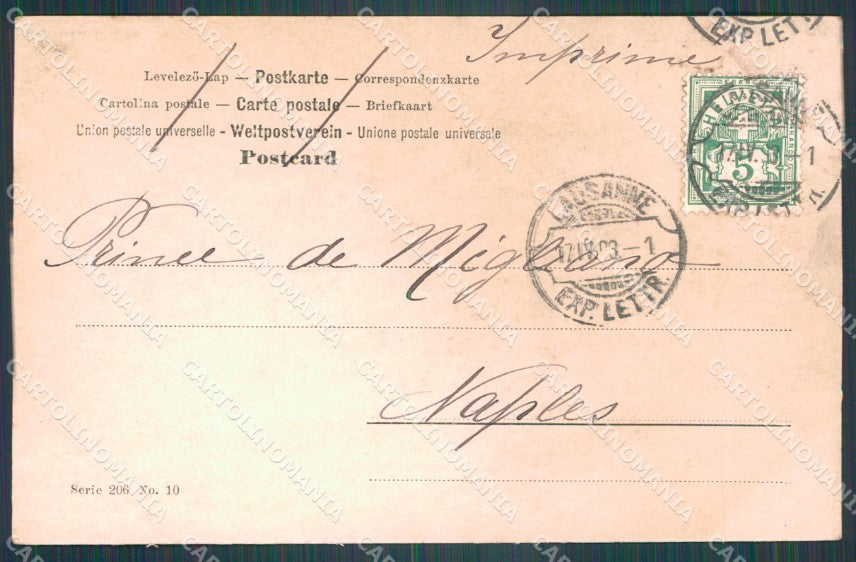 EXP. LETTR.
Imprimé
Levelezö-Lap — Postkarte — Correspondenzkarte
Cartolina postale — Carte postale — Briefkaart
Union postale universelle - Weltpostverein - Unione postale universale
Postcard
5
LAUSANNE
17.IV.03 - 1
EXP. LETTR.
Prince de Migliano
Naples
Serie 206 No. 10
CARTOLINOMANIA